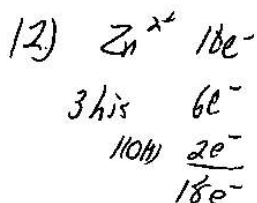 12) Zn²⁺ 10e⁻
3 his 6e⁻
HOH 2e⁻
18e⁻